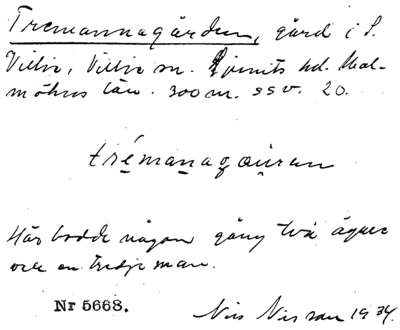 Tremannagården, gård i S.
Villie, Villie sn. Ljunits hd. Mal-
möhus län. 300 m. ssv. 20.
trémanagåuran
Här bodde någon gång två ägare
och en tredje man.
Nr 5668. Nils Nilsson 1934.